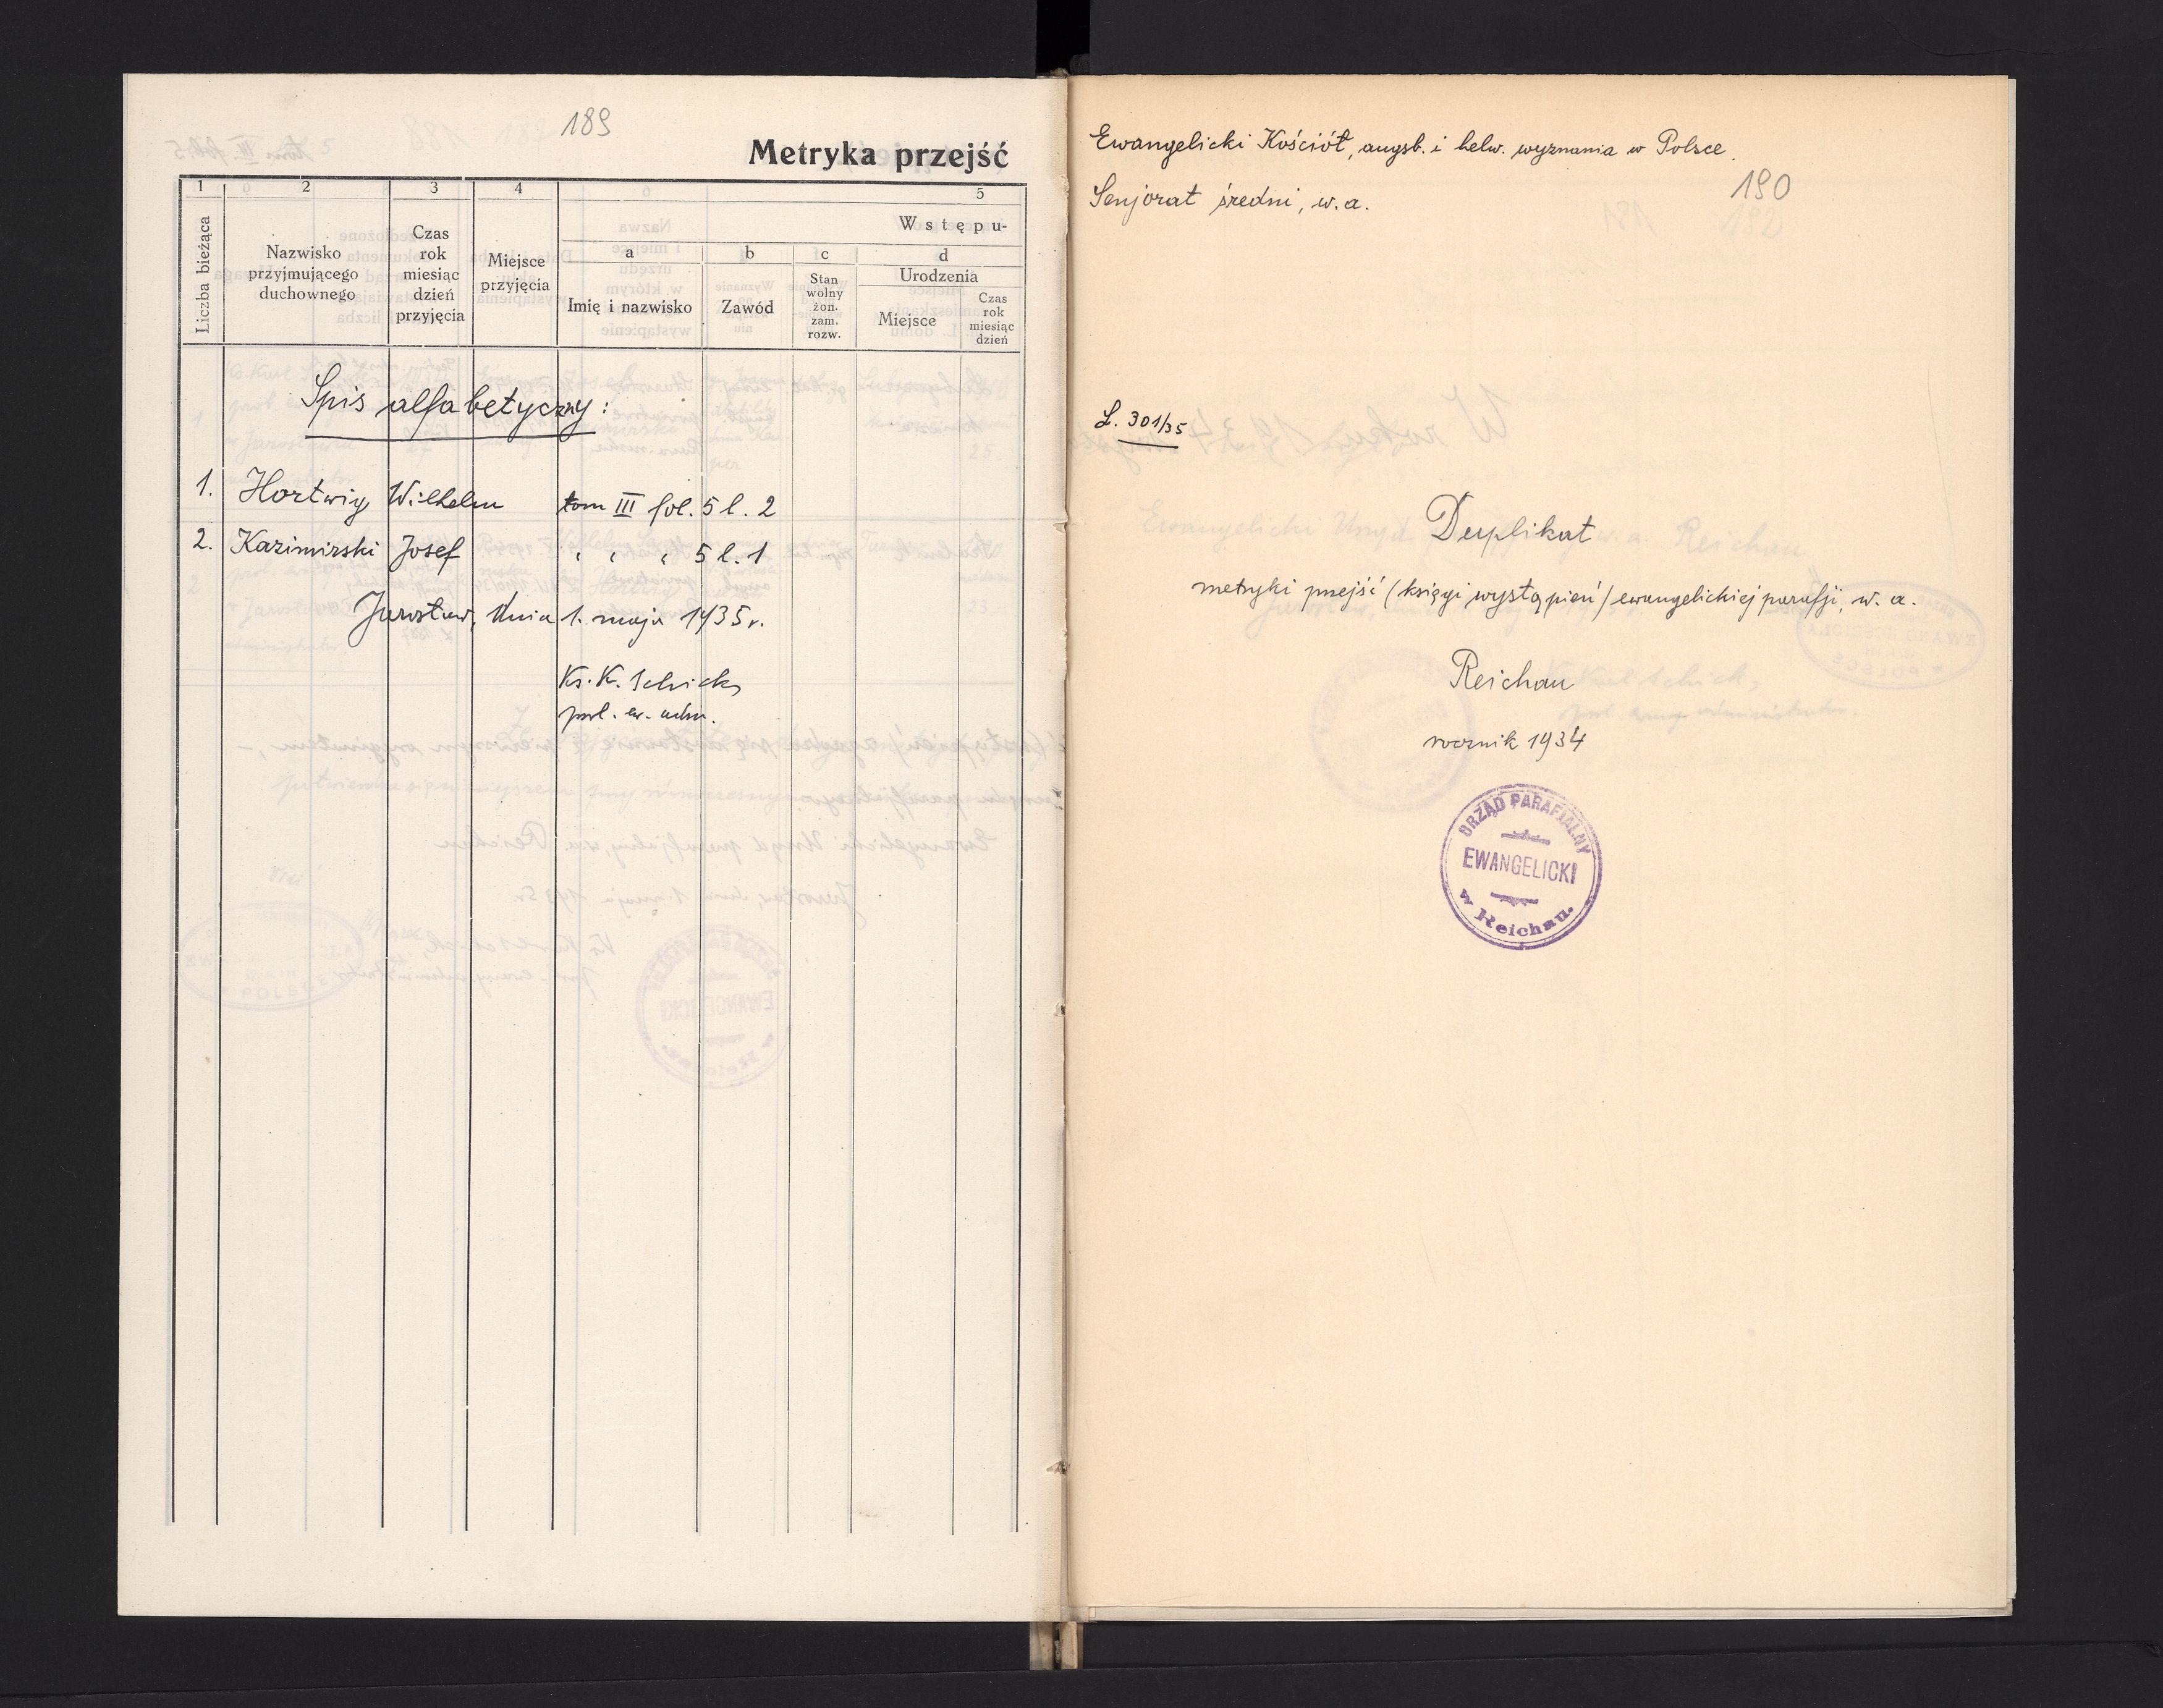 189
Metryka przejść
1 2 3 4 5
Liczba bieżąca
Nazwisko
przyjmującego
duchownego
Czas
rok
miesiąc
dzień
przyjęcia
Miejsce
przyjęcia
Wstępu-
a b c d
Imię i nazwisko
Zawód
Stan
wolny
żon.
zam.
rozw.
Urodzenia
Miejsce
Czas
rok
miesiąc
dzień
Spis alfabetyczny:
1. Hortwig Wilhelm tom III fol. 5 l. 2
2. Kazimirski Josef " " " 5 l. 1
Jarosław, dnia 1. maja 1935 r.
Ks. K. Schick,
prob. ew. adm.
Ewangelicki Kościół, augsb. i helw. wyznania w Polsce.
190
Senjorat średni, w. a.
L. 301/35
Duplikat
metryki przejść (księgi wystąpień) ewangelickiej parafji, w. a.
Reichau
rocznik 1934
URZĄD PARAFIALNY
EWANGELICKI
w Reichau.